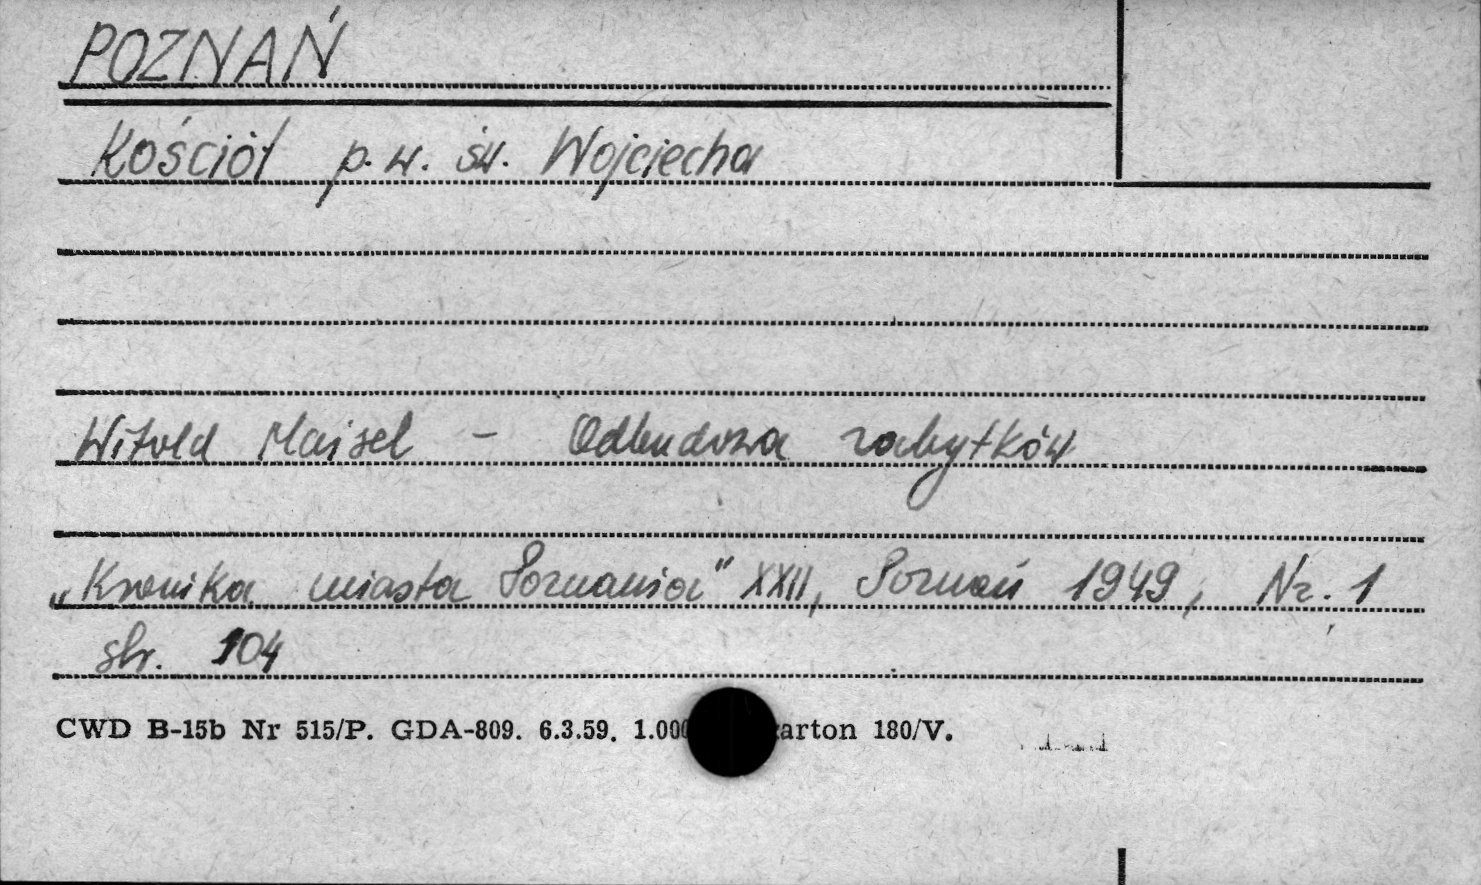 POZNAŃ
Kościół p.w. św. Wojciecha
Witold Maisel - Odbudowa zabytków
„Kronika miasta Poznania" XXII, Poznań 1949, Nr. 1
str. 104
CWD B-15b Nr 515/P. GDA-809. 6.3.59. 1.000 karton 180/V.